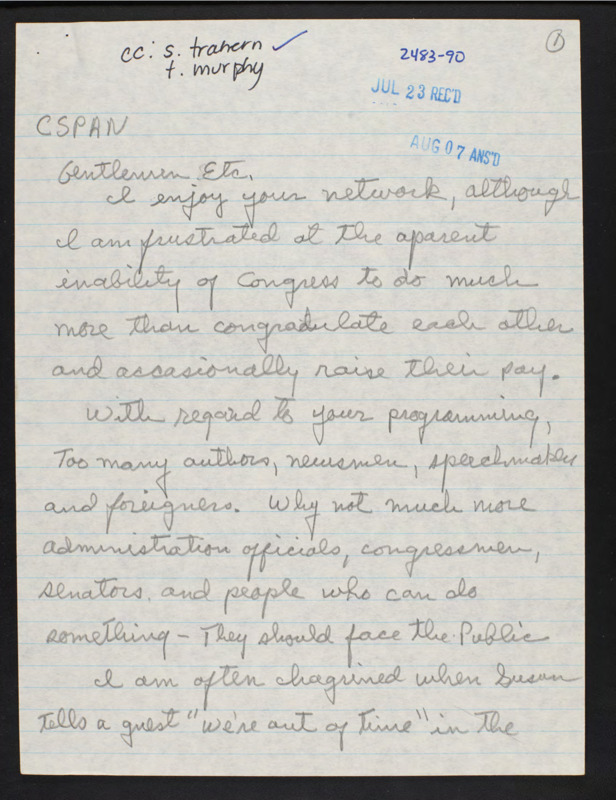 1
cc: s. trahern ✓
t. murphy
2483-90
JUL 23 REC'D
AUG 07 ANS'D
CSPAN
Gentlemen Etc.
I enjoy your network, although
I am frustrated at the aparent
inability of Congress to do much
more than congradulate each other
and accasionally raise their pay.
With regard to your programming,
Too many authors, newsmen, speechmakers
and foreigners. Why not much more
administration officials, congressmen,
senators, and people who can do
something - They should face the Public
I am often chagrined when Susan
tells a guest "we're out of time" in the